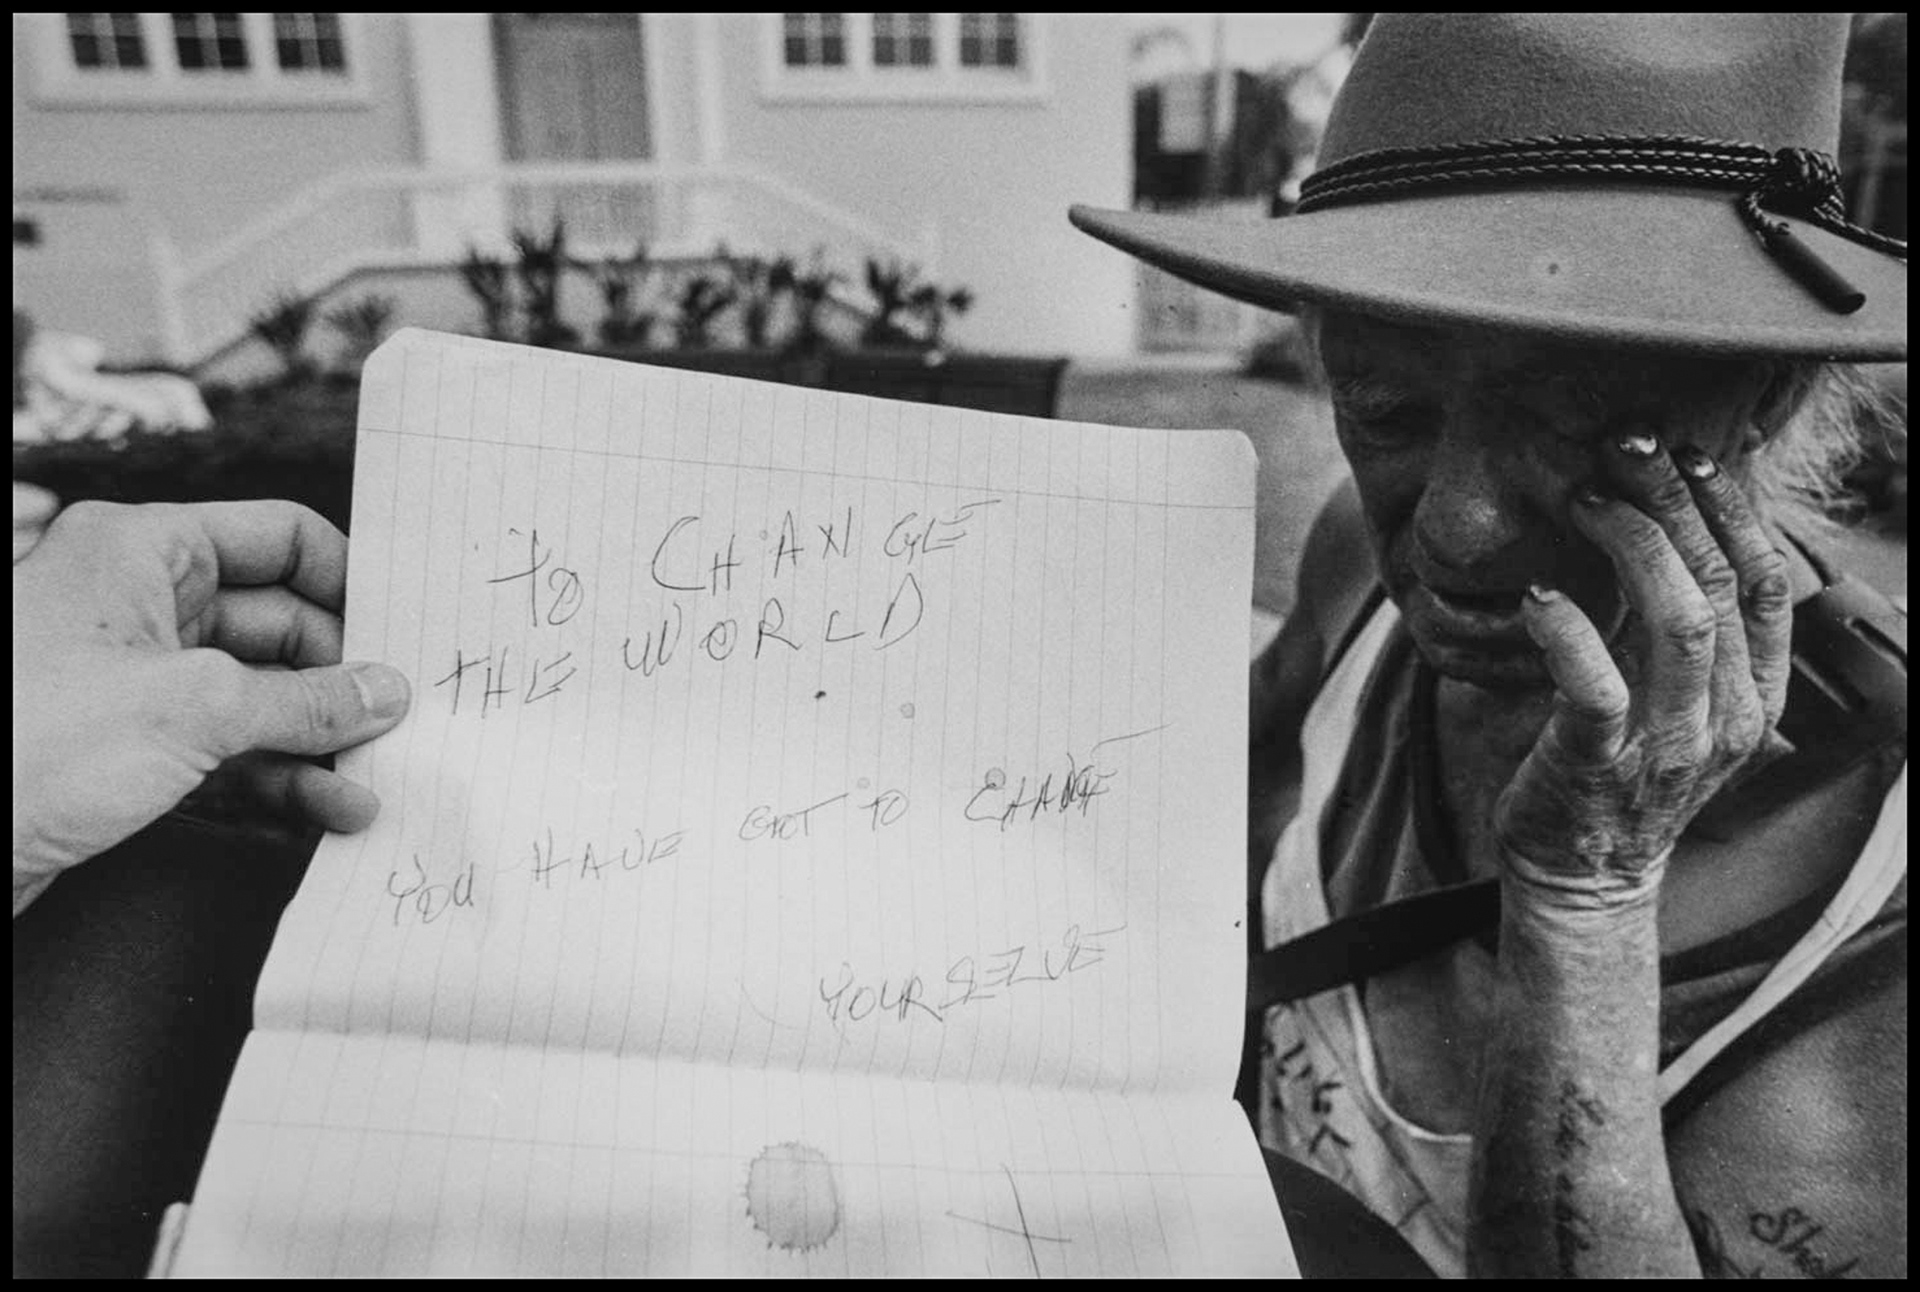 TO CHANGE
THE WORLD
YOU HAVE GOT TO CHANGE
YOURSELVE